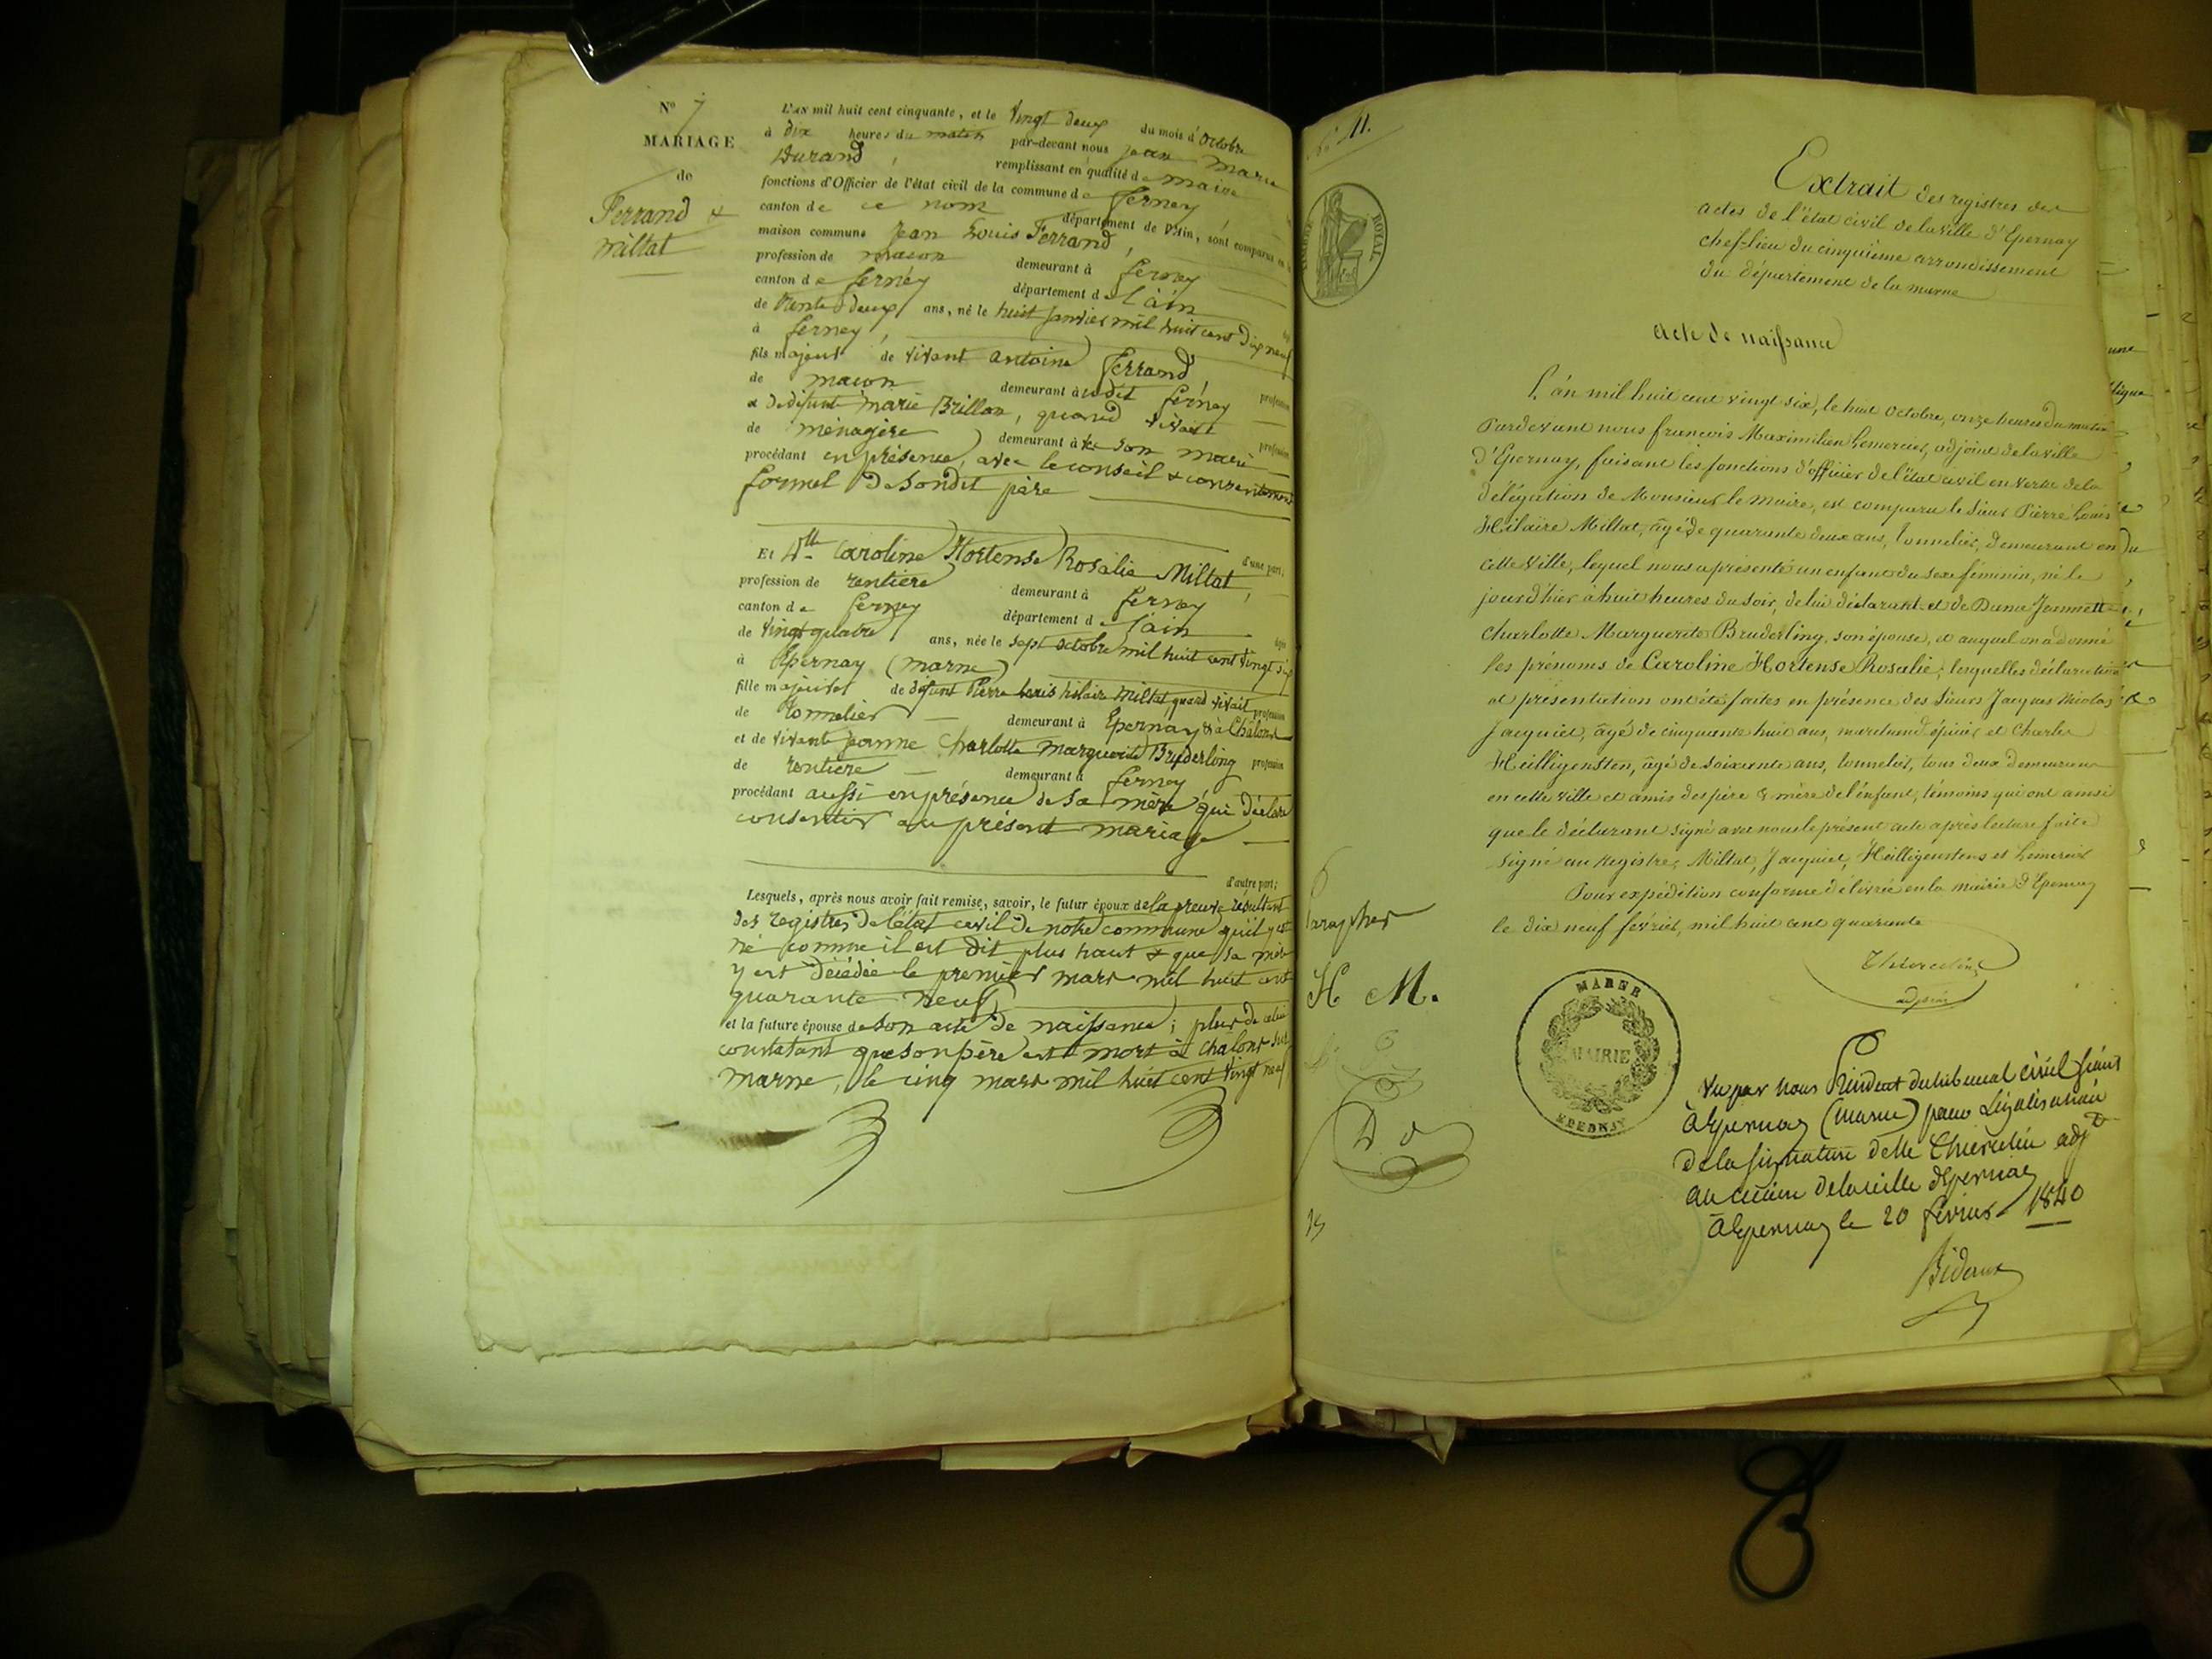 N° 7
MARIAGE
de
Ferrand &
Miltat
L'an mil huit cent cinquante, et le vingt deux du mois d'octobre
à dix heures du matin par-devant nous Jean Marie
Durand, remplissant en qualité de maire
fonctions d'Officier de l'état civil de la commune de ferney
canton de ce nom département de l'Ain, sont comparus en
maison commune Jean Louis Ferrand,
profession de macon demeurant à ferney
canton de ferney département de l'ain
de trente deux ans, né le huit janvier mil huit cent dix neuf
à ferney,
fils majeur de vivant antoine Ferrand profession
de macon demeurant à udit ferney
& de défunte marie Brillon, quand vivait profession
de ménagère demeurant à son mari
procédant en présence, avec le conseil & consentement
formel de sondit père
d'une part;
Et Dlle Caroline Hortense Rosalie Miltat,
profession de rentière demeurant à ferney
canton de ferney département de l'ain
de vingt quatre ans, née le sept octobre mil huit cent vingt six
à Epernay (marne)
fille majeure de défunt Pierre Louis hilaire Miltat quand vivait profession
de tonnelier demeurant à Epernay & à Châlons
et de vivante Jeanne Charlotte Marguerite Bruderling profession
de rentière demeurant à ferney
procédant aussi en présence de sa mère qui déclare
consentir au présent mariage
d'autre part;
Lesquels, après nous avoir fait remise, savoir, le futur époux de la preuve résultant
des registres de l'état civil de notre commune qu'il y est
né comme il est dit plus haut & que sa mère
y est décédée le premier mars mil huit cent
quarante neuf
et la future épouse de son acte de naissance; plus de celui
constatant que son père est mort à Chalons sur
marne, le cinq mars mil huit cent vingt neuf
N° 11.
TIMBRE ROYAL
Extrait des registres des
actes de l'état civil de la ville d'Epernay
chef-lieu du cinquième arrondissement
du département de la marne
Acte de naissance
L'an mil huit cent vingt six, le huit Octobre, onze heures du matin
Pardevant nous françois Maximilien Lemercier, adjoint de la ville
d'Epernay, faisant les fonctions d'officier de l'état civil en vertu de la
délégation de Monsieur le Maire, est comparu le Sieur Pierre Louis
Hilaire Miltat, âgé de quarante deux ans, tonnelier, demeurant en
cette ville, lequel nous a présenté un enfant du sexe féminin, né le
jour d'hier à huit heures du soir, de lui déclarant et de Dame Jeannette
Charlotte Marguerite Bruderling, son épouse, et auquel on a donné
les prénoms de Caroline Hortense Rosalie; lesquelles déclaration
et présentation ont été faites en présence des Sieurs Jacques Nicolas
Jacquier, âgé de cinquante huit ans, marchand épicier et Charles
Heilligensten, âgé de soixante ans, tonnelier, tous deux demeurans
en cette ville et amis des père & mère de l'enfant, témoins qui ont ainsi
que le déclarant signé avec nous le présent acte après lecture faite
Signé au registre; Miltat, Jacquiet, Heilligenstens et Lemercier
Pour expédition conforme délivrée en la mairie d'Epernay
le dix neuf février, mil huit cent quarante
Thiercelin
adjoint
Parapher
H M.
MARNE
MAIRIE
EPERNAY
Vu par nous Président du tribunal civil séant
à Epernay (marne) pour Légalisation
de la signature de Mr Thiercelin adjt
au maire de la ville d'Epernay
à Epernay le 20 février 1840
Bidaux